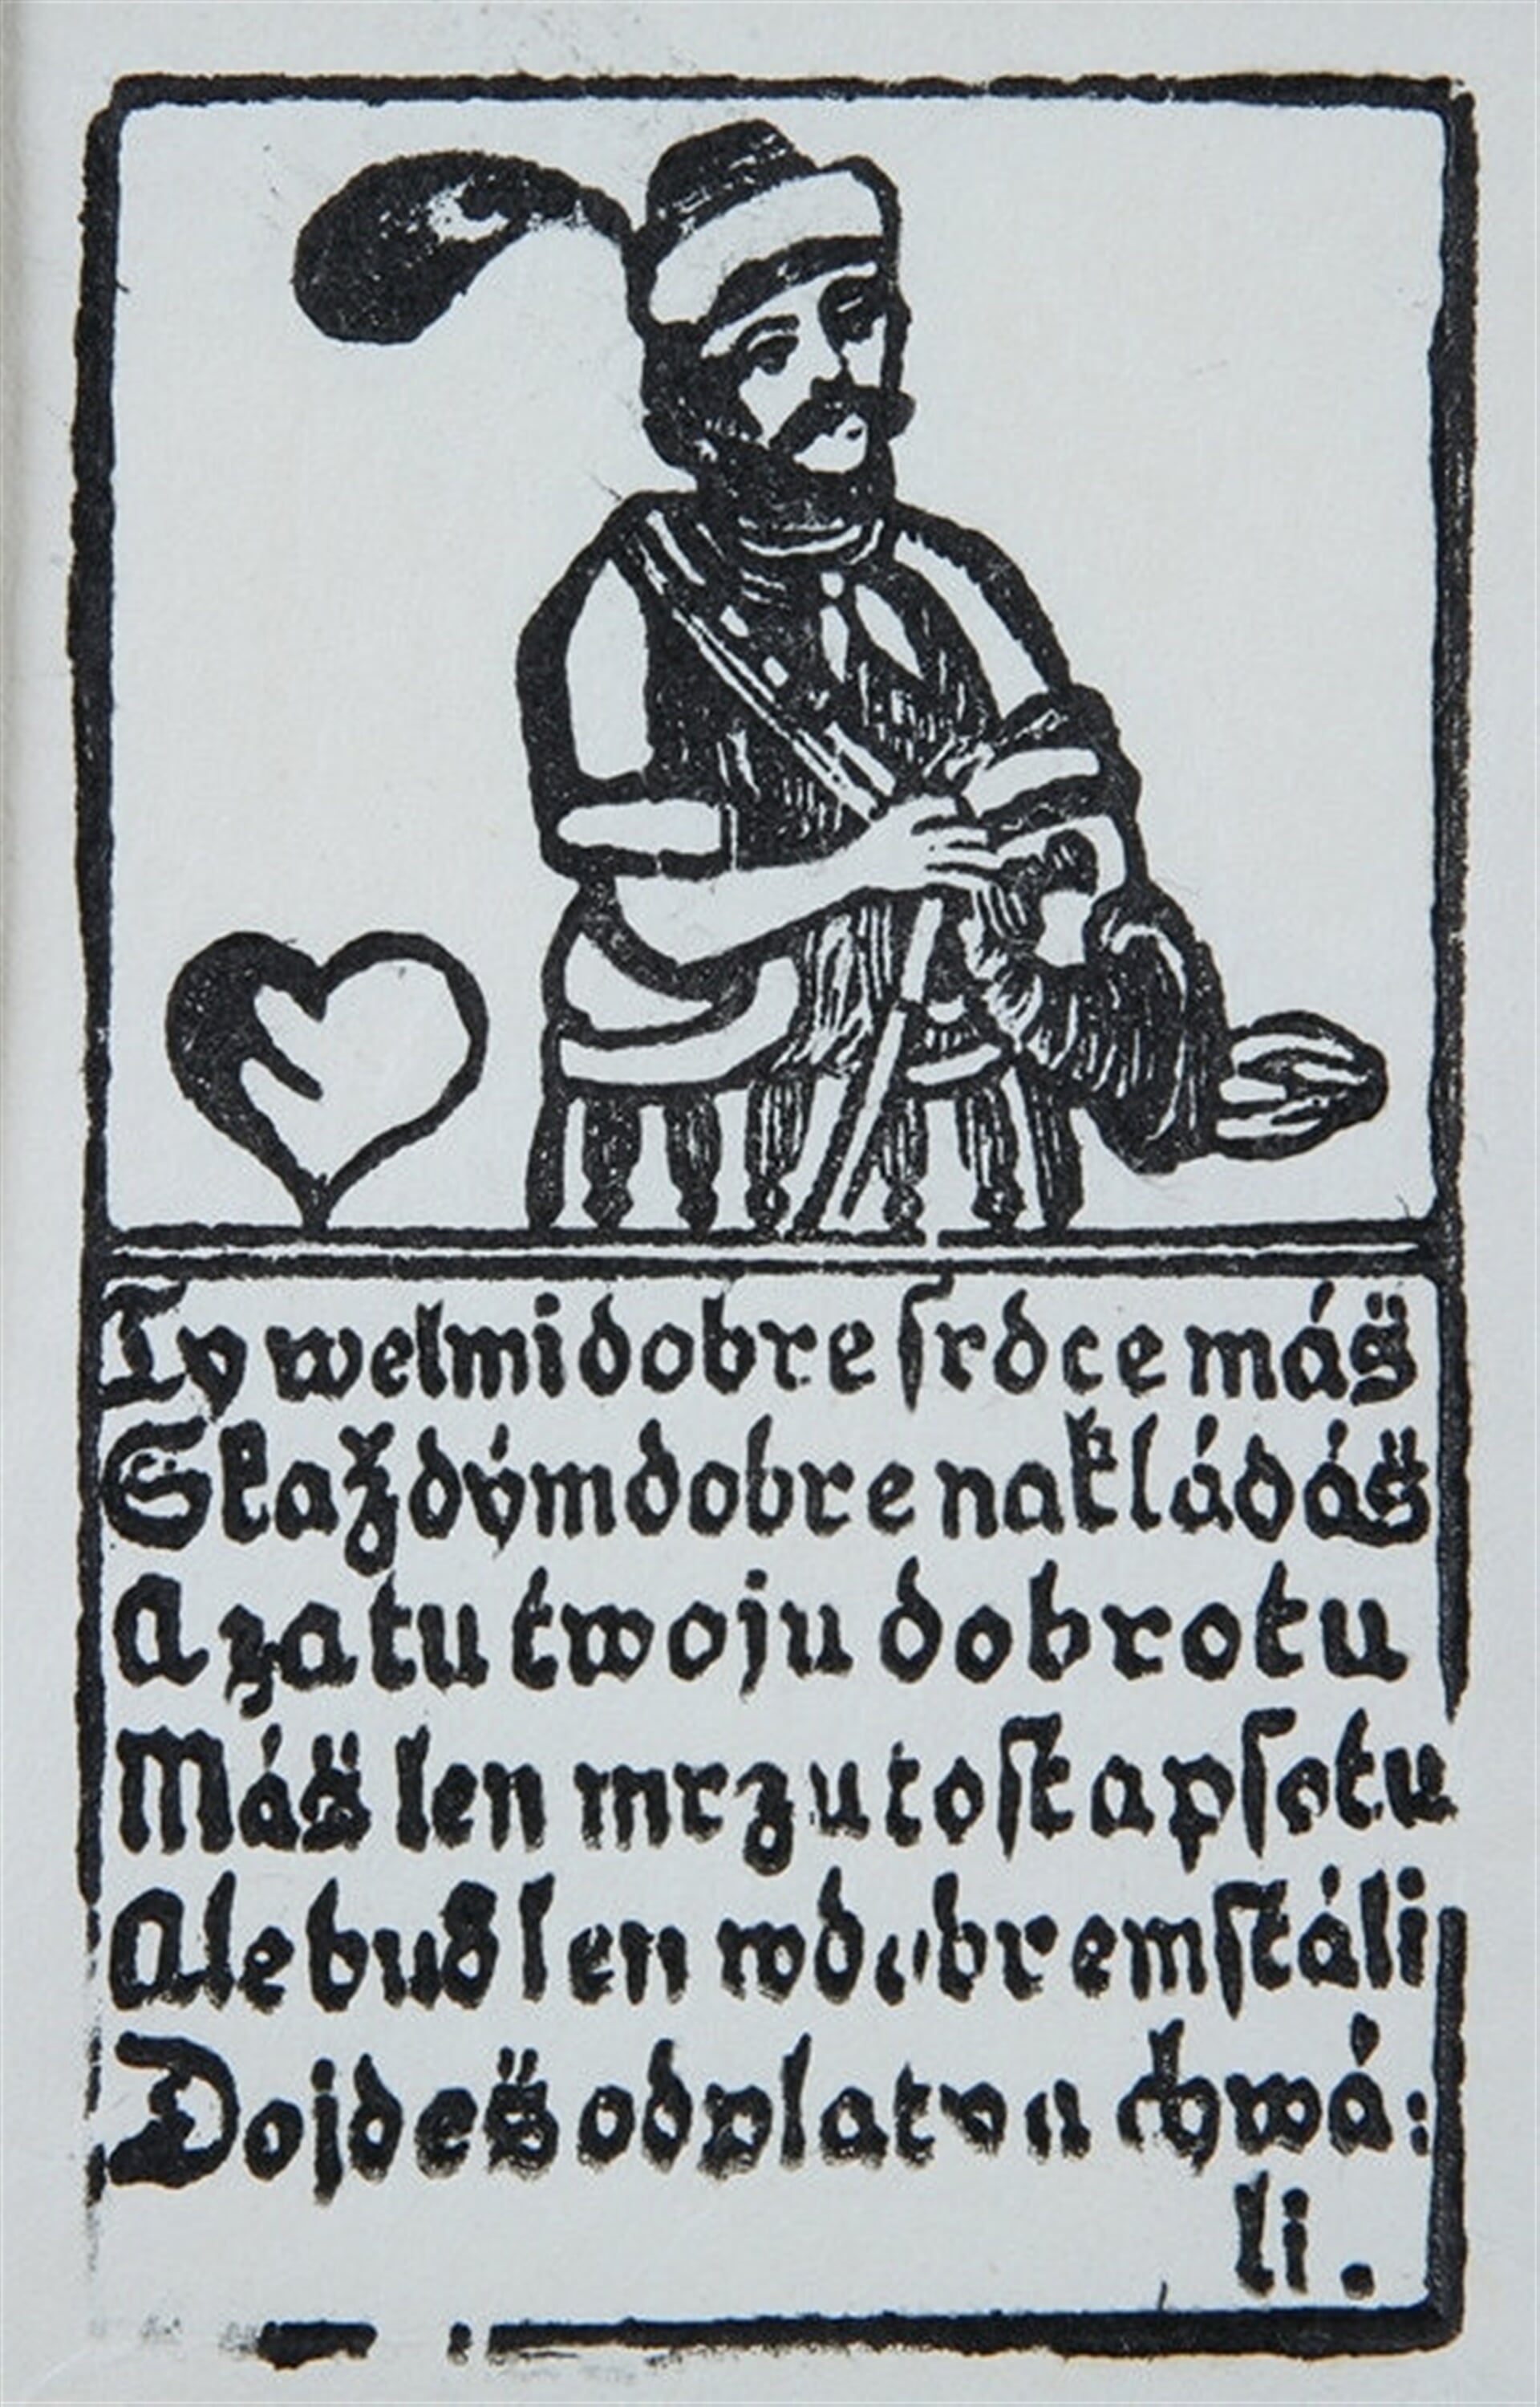 Ty welmi dobre ſrdce máš
Skaždým dobre nakládáš
A za tu twoju dobrotu
Máš len mrzutoſt a pſotu
Ale buď len w dobrem ſtáli
Dojdeš odplaty a chwá:
li.